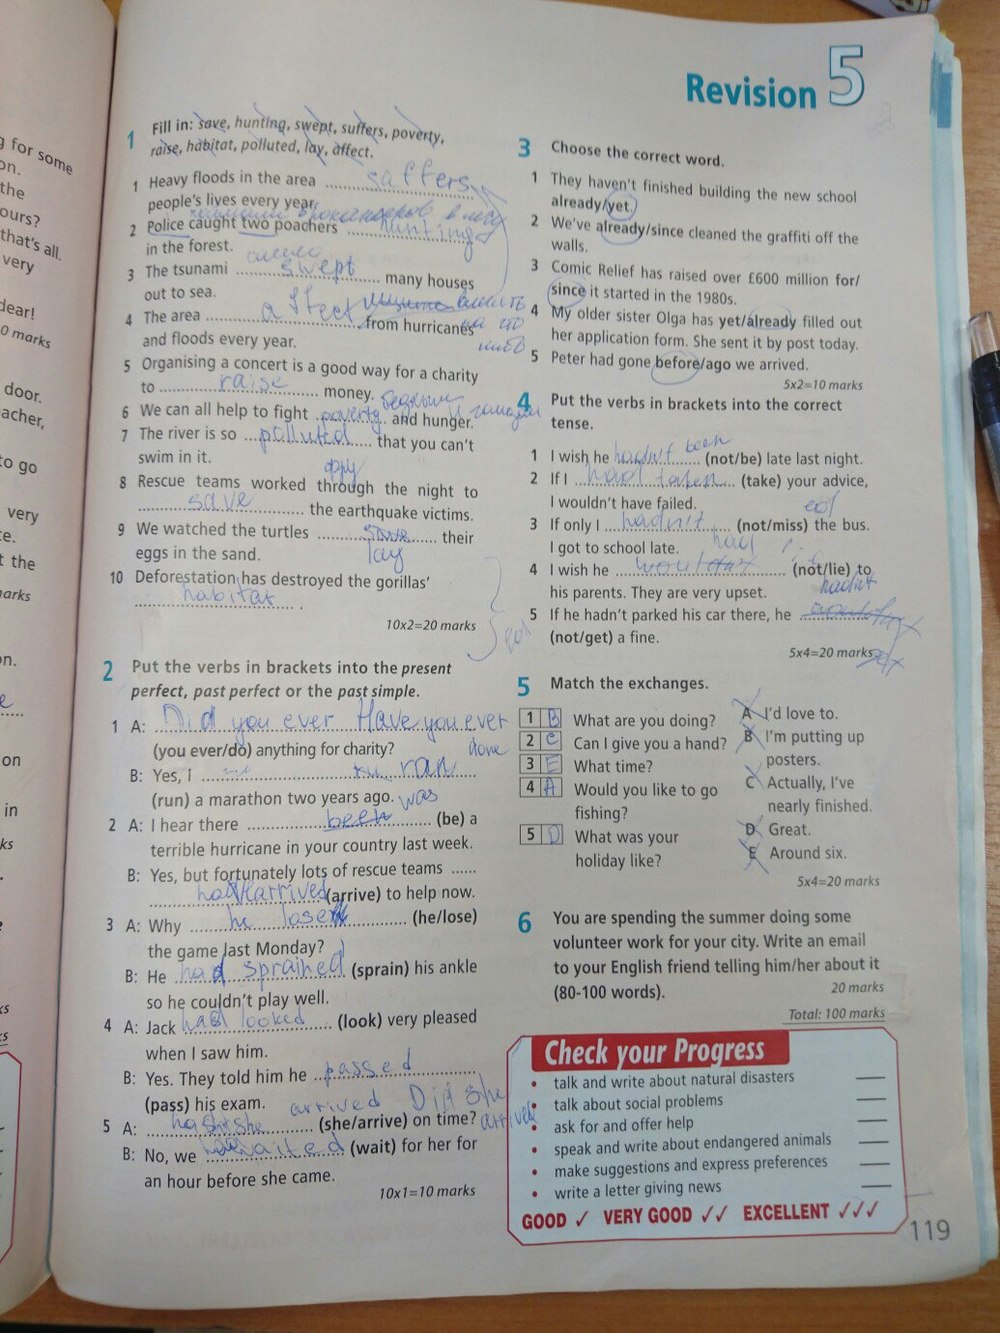 Revision 5
1 Fill in: save, hunting, swept, suffers, poverty,
raise, habitat, polluted, lay, affect.
1 Heavy floods in the area saffers
people's lives every year.
2 Police caught two poachers hunting
in the forest.
3 The tsunami swept many houses
out to sea.
4 The area affect from hurricanes
and floods every year.
5 Organising a concert is a good way for a charity
to raise money.
6 We can all help to fight poverty and hunger.
7 The river is so polluted that you can't
swim in it.
8 Rescue teams worked through the night to
save the earthquake victims.
9 We watched the turtles save their
lay
eggs in the sand.
10 Deforestation has destroyed the gorillas'
habitat.
10x2=20 marks
2 Put the verbs in brackets into the present
perfect, past perfect or the past simple.
1 A: Did you ever Have you ever
done
(you ever/do) anything for charity?
B: Yes, I ran
(run) a marathon two years ago.
was
2 A: I hear there been (be) a
terrible hurricane in your country last week.
B: Yes, but fortunately lots of rescue teams
arrived (arrive) to help now.
3 A: Why he lose (he/lose)
the game last Monday?
B: He had sprained (sprain) his ankle
so he couldn't play well.
4 A: Jack had looked (look) very pleased
when I saw him.
B: Yes. They told him he passed
(pass) his exam.
arrived Did she
arrived
5 A: (she/arrive) on time?
B: No, we waited (wait) for her for
an hour before she came.
10x1=10 marks
3 Choose the correct word.
1 They haven't finished building the new school
already/yet.
2 We've already/since cleaned the graffiti off the
walls.
3 Comic Relief has raised over £600 million for/
since it started in the 1980s.
4 My older sister Olga has yet/already filled out
her application form. She sent it by post today.
5 Peter had gone before/ago we arrived.
5x2=10 marks
4 Put the verbs in brackets into the correct
tense.
1 I wish he hadn't been (not/be) late last night.
2 If I had taken (take) your advice,
I wouldn't have failed.
3 If only I hadn't (not/miss) the bus.
I got to school late.
4 I wish he (not/lie) to
his parents. They are very upset.
hadn't
5 If he hadn't parked his car there, he
(not/get) a fine.
5x4=20 marks
5 Match the exchanges.
1 B What are you doing?
2 C Can I give you a hand?
3 E What time?
4 A Would you like to go
fishing?
5 D What was your
holiday like?
A I'd love to.
B I'm putting up
posters.
C Actually, I've
nearly finished.
D Great.
E Around six.
5x4=20 marks
6 You are spending the summer doing some
volunteer work for your city. Write an email
to your English friend telling him/her about it
(80-100 words).
20 marks
Total: 100 marks
Check your Progress
• talk and write about natural disasters
• talk about social problems
• ask for and offer help
• speak and write about endangered animals
• make suggestions and express preferences
• write a letter giving news
GOOD ✓ VERY GOOD ✓✓ EXCELLENT ✓✓✓
119